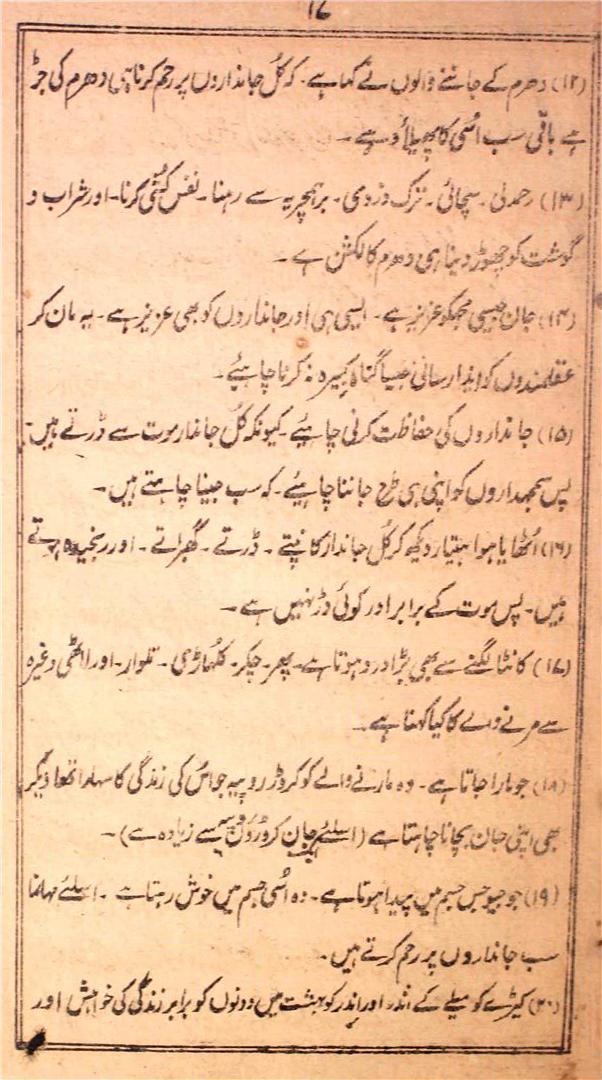 ۱۷
(۱۲) دھرم کے جاننے والوں نے کہا ہے۔ کہ کُل جانداروں پر رحم کرنا ہی دھرم کی جڑ
ہے باقی سب اُسی کا پھیلاؤ ہے۔
(۱۳) رحمدلی۔ سچائی۔ ترک دزدی۔ برہمچریہ سے رہنا۔ نفس کُشی کرنا۔ اور شراب و
گوشت کو چھوڑ دینا ہی دھرم کا لکشن ہے۔
(۱۴) جان جیسی مجھکو عزیز ہے۔ ایسی ہی اور جانداروں کو بھی عزیز ہے۔ یہ مان کر
عقلمندوں کو ایذا رسانی جیسا گناہ کبیرہ نہ کرنا چاہیئے۔
(۱۵) جانداروں کی حفاظت کرنی چاہیئے۔ کیونکہ کُل جاندار موت سے ڈرتے ہیں۔
پس سمجھداروں کو اپنی ہی طرح جاننا چاہیئے۔ کہ سب جینا چاہتے ہیں۔
(۱۶) اُٹھایا ہوا ہتیار دیکھ کر کُل جاندار کانپتے۔ ڈرتے۔ گھبراتے۔ اور رنجیدہ ہوتے
ہیں۔ پس موت کے برابر اور کوئی ڈر نہیں ہے۔
(۱۷) کانٹا لگنے سے بھی بڑا درد ہوتا ہے۔ پھر۔ چکر۔ کلہاڑی۔ تلوار۔ اور لاٹھی وغیرہ
سے مرنے والے کا کیا کہنا ہے۔
(۱۸) جو مارا جاتا ہے۔ وہ مارنے والے کو کروڑ روپیہ جو اُس کی زندگی کا سہارا تھا دیکر
بھی اپنی جان بچانا چاہتا ہے (اسلئے جان کروڑوں روپیہ سے زیادہ ہے)۔
(۱۹) جو جیو جس جسم میں پیدا ہوتا ہے۔ وہ اُسی جسم میں خوش رہتا ہے۔ اسلئے مہاتما
سب جانداروں پر رحم کرتے ہیں۔
(۲۰) کیڑے کو میلے کے اندر اور اِندر کو بہشت میں دونوں کو برابر زندگی کی خواہش اور